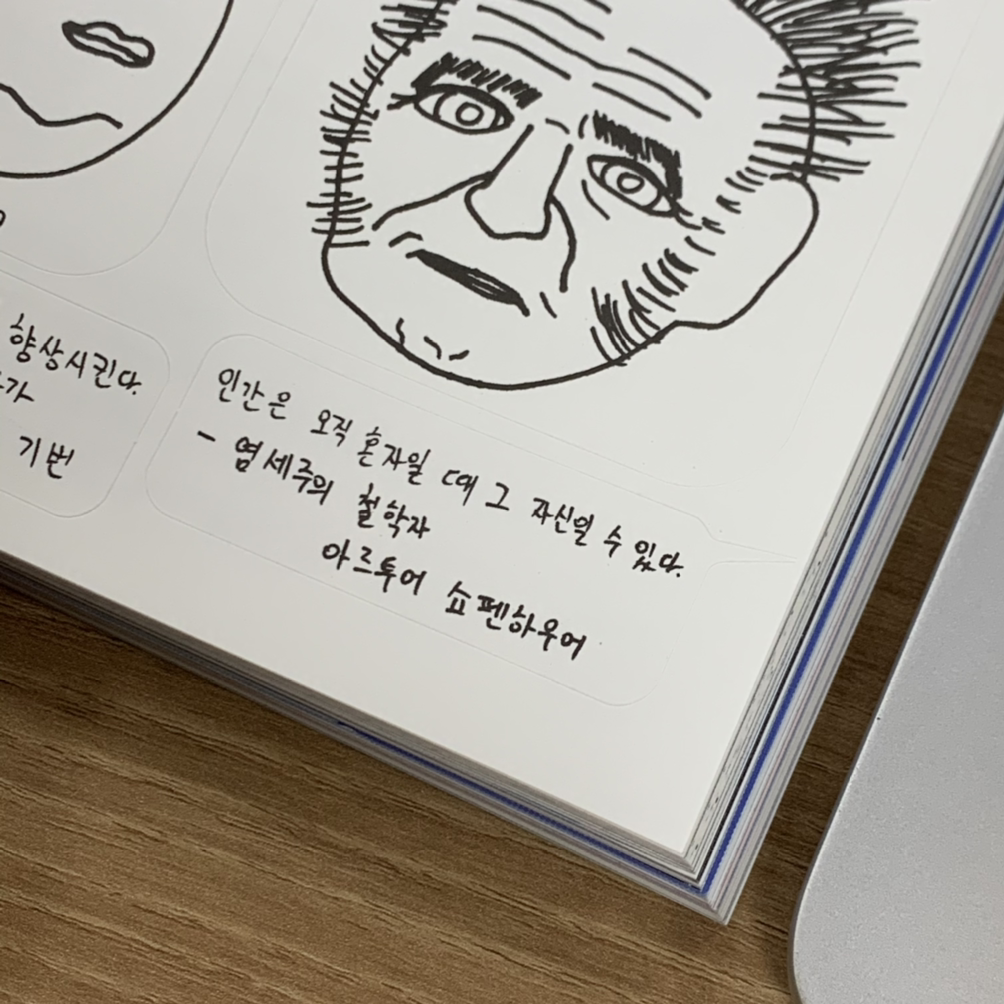 향상시킨다.
가
기번
인간은 오직 혼자일 때 그 자신일 수 있다.
- 염세주의 철학자
아르투어 쇼펜하우어